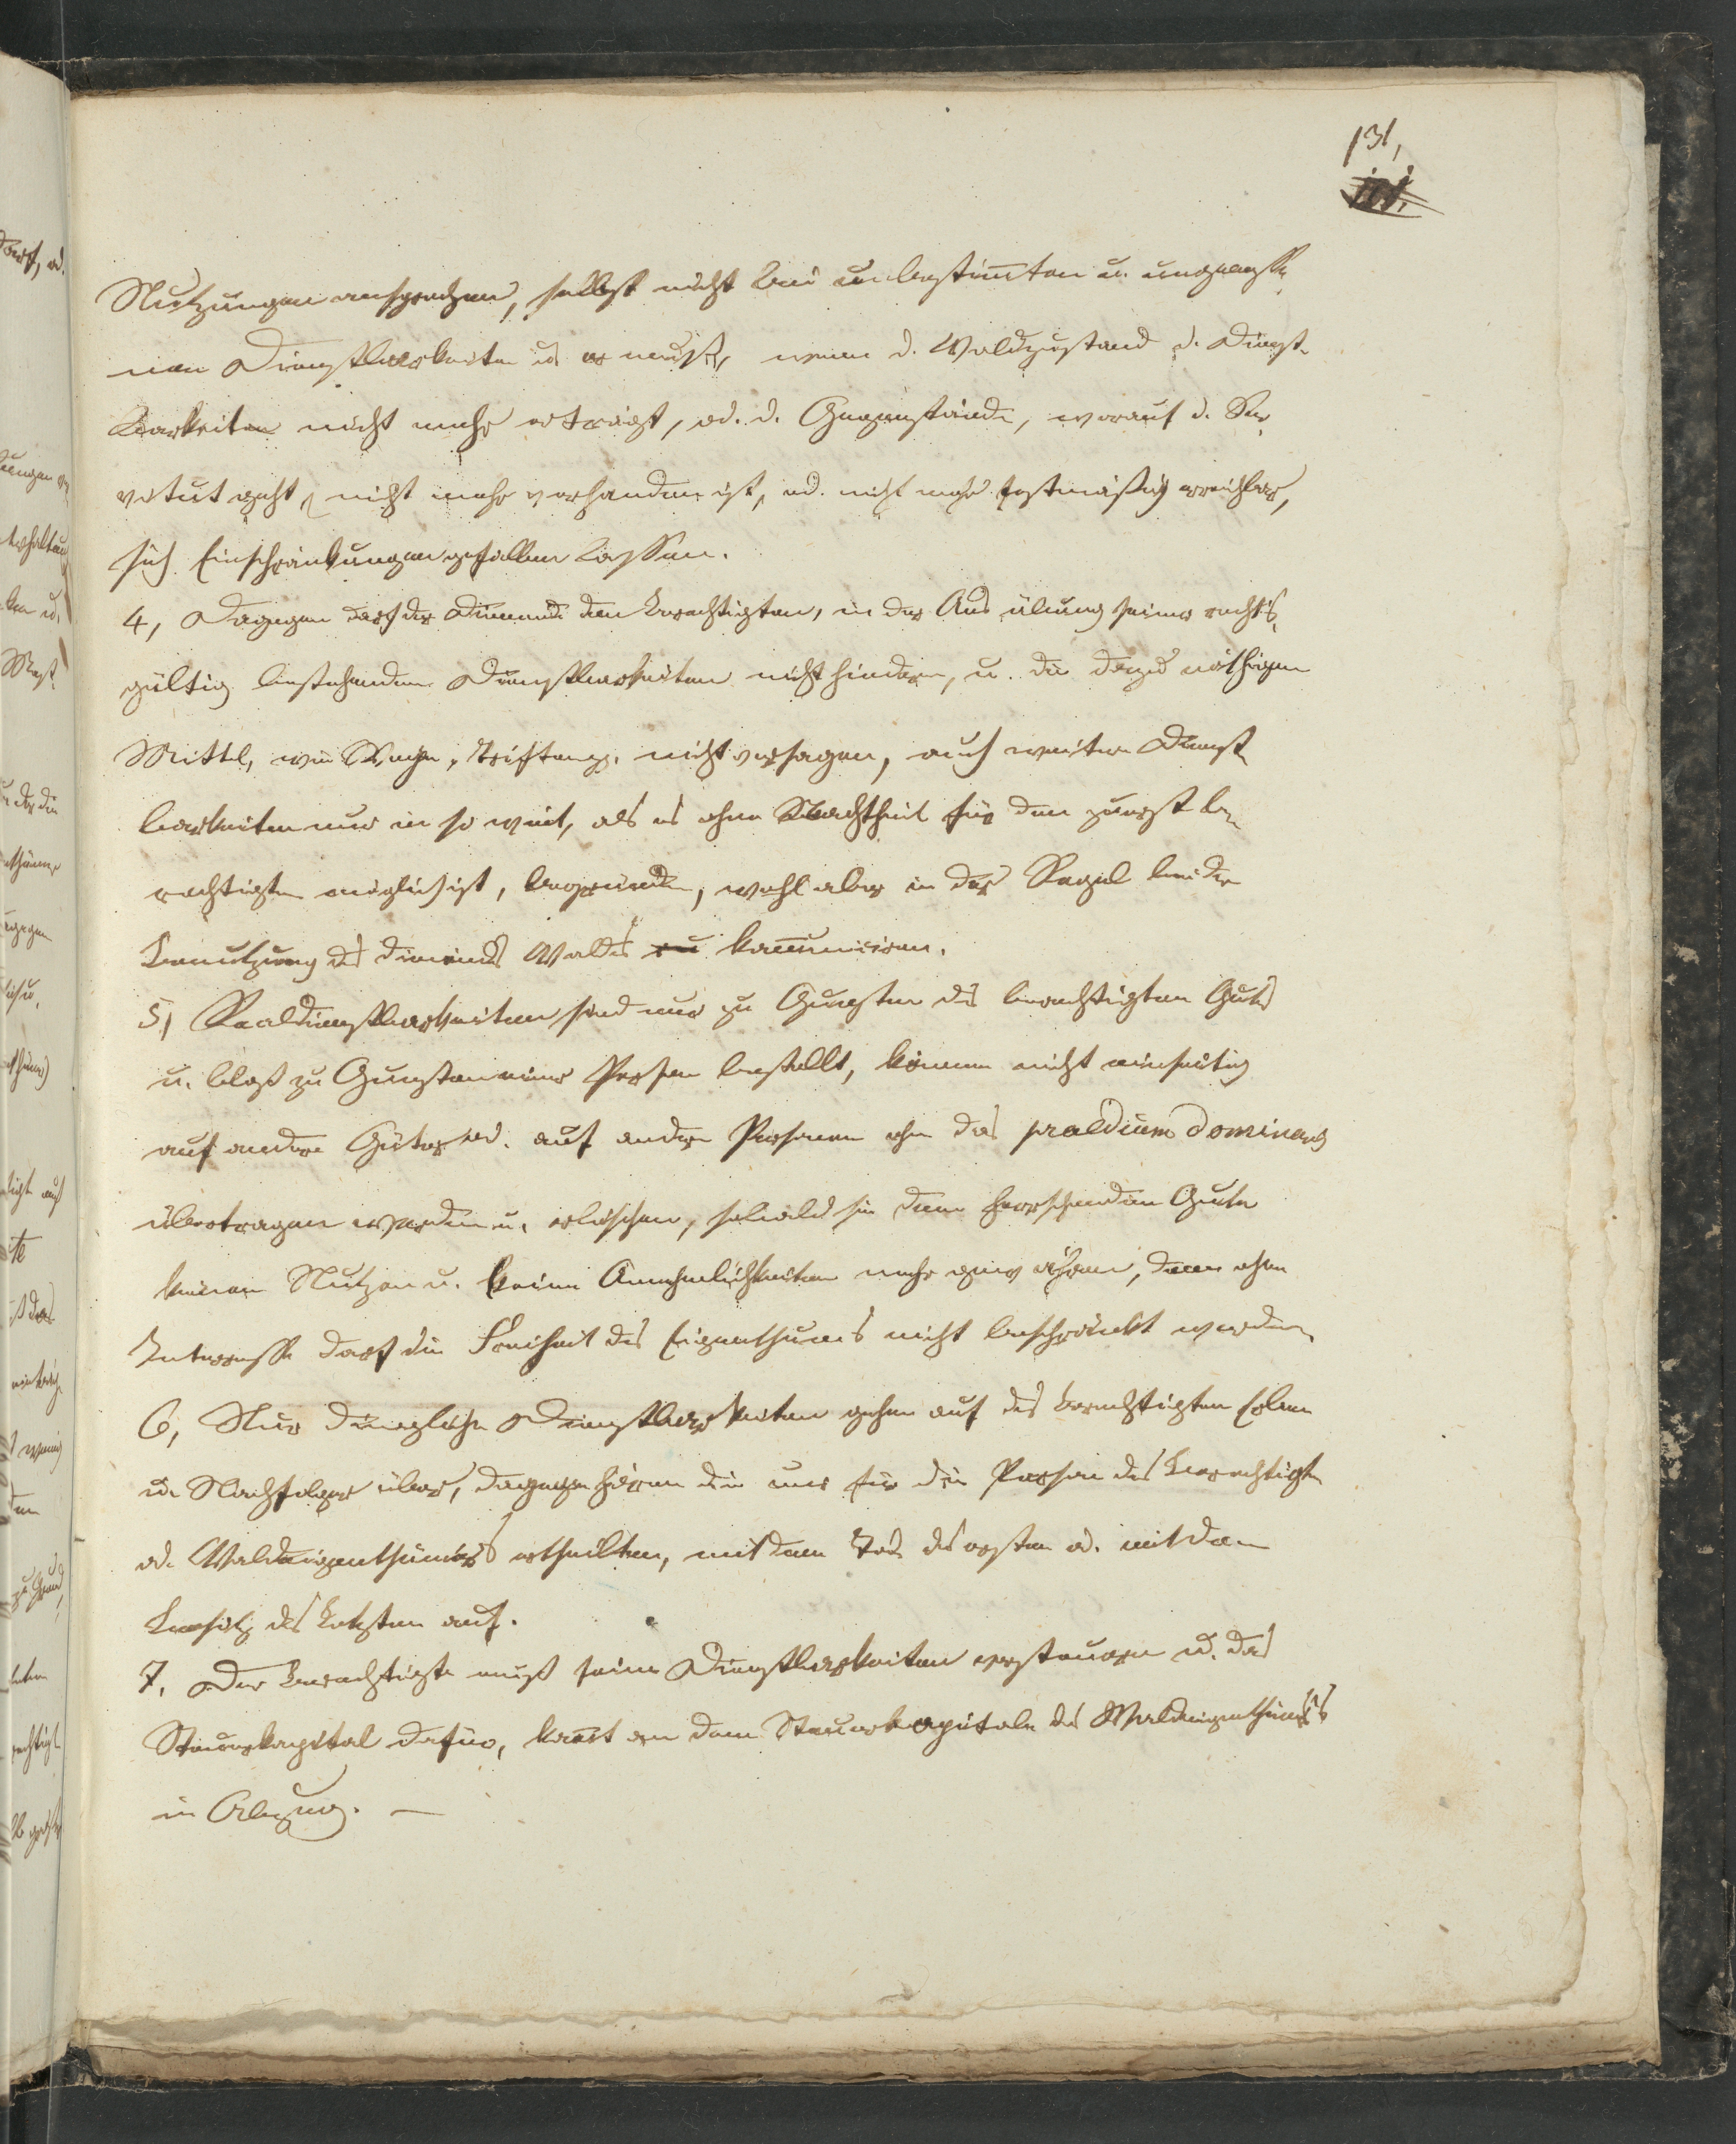 131,
Nutzungen ansprechen, selbst nicht bei unbestim̅ten u. ungemesse¬
nen Dienstbarkeiten u. er muß, wenn d. Waldzustand d. Dienst¬
barkeiten nicht mehr erträgt, od. d. Gegenstände, worauf d. Ser¬
vitut geht, nicht mehr vorhanden ist, od. nicht mehr forstmäßig erreichbar,
sich Einschränkungen gefallen lassen.
4, Dagegen darf der Dienende den Berechtigten, in der Ausübung seiner rechts¬
gültig bestehenden Dienstbarkeiten nicht hindern, u. die dazu nöthigen
Mittel, wie Wege, Triften, nicht versagen, auch weitere Dienst¬
barkeiten nur in so weit, als es ohne Nachtheil für den zuerst be¬
rechtigten möglich ist, begründen, wohl aber in der Regel bei der
Benutzung des dienenden Waldes konkurriren.
5, Realdienstbarkeiten sind nur zu Gunsten des berechtigten Guts
u. bloß zu Gunsten einer Person bestellt, können nicht einseitig
auf andere Güter od. auf andere Personen ohne das praedium dominans
übertragen werden u. erlöschen, sobald sie dem herrschenden Gute
keinen Nutzen u. keine Annehmlichkeiten mehr gewähren, denn ohne
Interesse darf die Freiheit des Eigenthums nicht beschränkt werden.
6, Nur dingliche Dienstbarkeiten gehen auf des Berechtigten Erben
u. Nachfolger über, dagegen hören die nur für die Person des Berechtigten
od. Waldeigenthümers ertheilten, mit dem Tod des ersten od. mit dem
Besitz des Letzten auf.
7, Der Berechtigte muß seine Dienstbarkeiten versteuern u. das
Steuerkapital dafür, kom̅t an dem Steuerkapitale des Waldeigenthümers
in Abzug. —